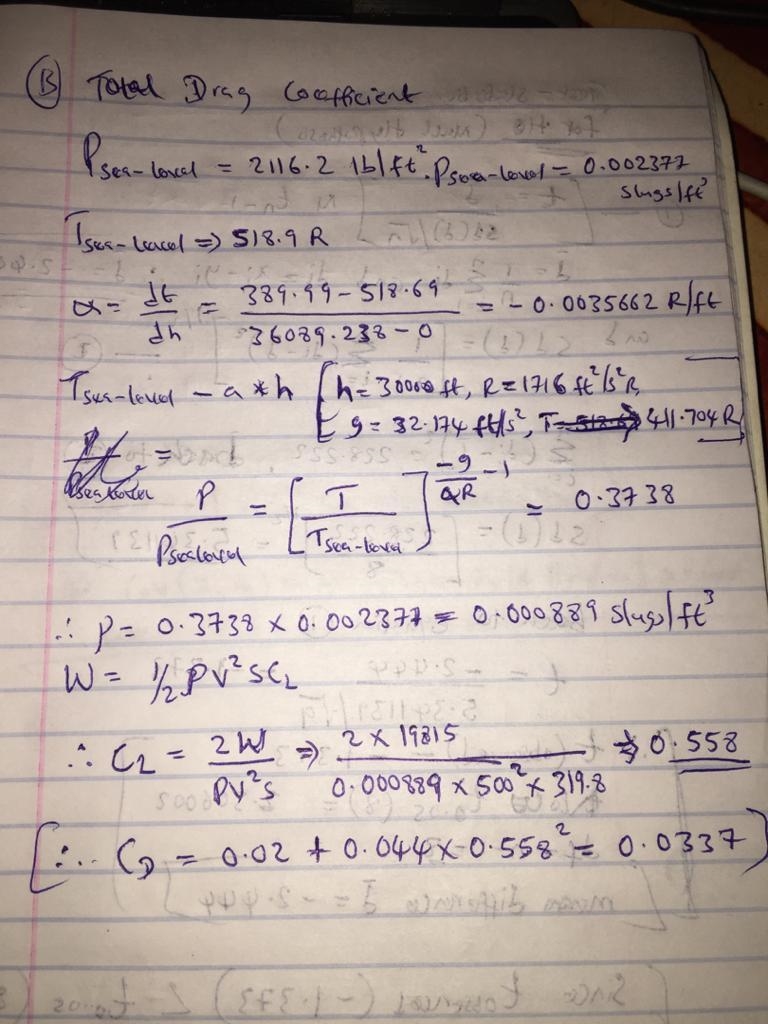 Ⓑ Total Drag Coefficient
P sea-level = 2116.2 lb/ft². ρ sea-level = 0.002377 slugs/ft³
T sea-level ⇒ 518.9 R
α = dt/dh = (389.99 - 518.69)/(36089.238 - 0) = - 0.0035662 R/ft
T sea-level - a * h [h = 30000 ft, R = 1716 ft²/s²R,
g = 32.174 ft/s², T 411.704 R]
=
P/P sea level = [T/T sea-level]^(-g/αR - 1) = 0.3738
∴ ρ = 0.3738 × 0.002377 = 0.000889 slugs/ft³
W = 1/2 ρV²SCL
∴ CL = 2W/ρV²S ⇒ (2 × 19815)/(0.000889 × 500² × 319.8) ⇒ 0.558
[∴ CD = 0.02 + 0.044 × 0.558² = 0.0337]